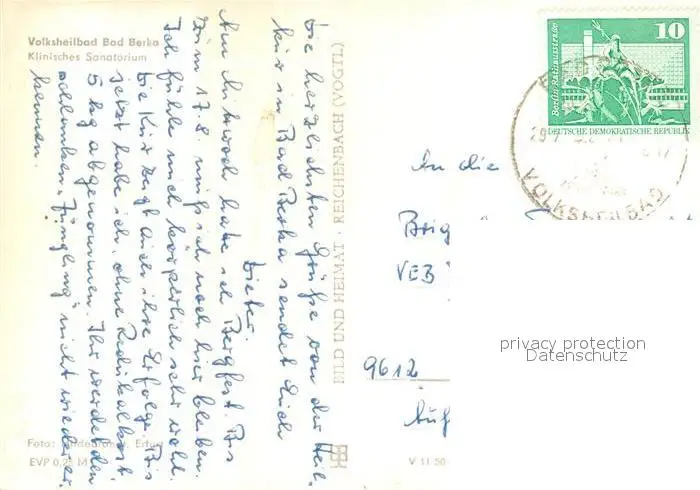 Volksheilbad Bad Berka
Klinisches Sanatorium
Die herzlichsten Grüße von der Heil-
kur in Bad Berka sendet Euch
Dieter.
Am Mittwoch habe ich Bergfest. Bis
zum 17.8. muß ich noch hier bleiben.
Ich fühle mich körperlich sehr wohl.
Die Kur zeigt auch ihre Erfolge. Bis
jetzt habe ich, ohne Radikalkost
5 kg abgenommen. Ihr werdet den
schlanken "Jüngling" nicht wieder er-
kennen.
Foto: Erfurt
EVP 0,25 M
BILD UND HEIMAT · REICHENBACH (VOGTL)
V 11 50
10
Berlin, Rathausstraße
DEUTSCHE DEMOKRATISCHE REPUBLIK
VOLKSHEILBAD
An die
Brig
VEB
9612
privacy protection
Datenschutz